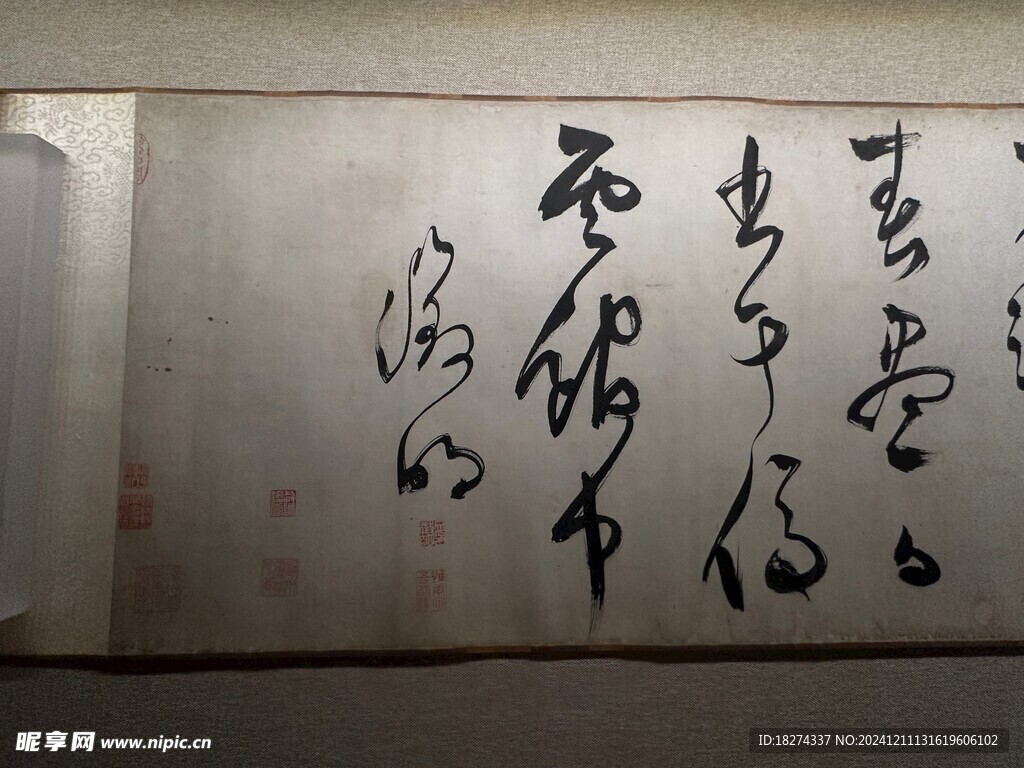 春尽日
书于停
云馆中
徵明
昵享网 www.nipic.cn
ID:18274337 NO:20241211131619606102